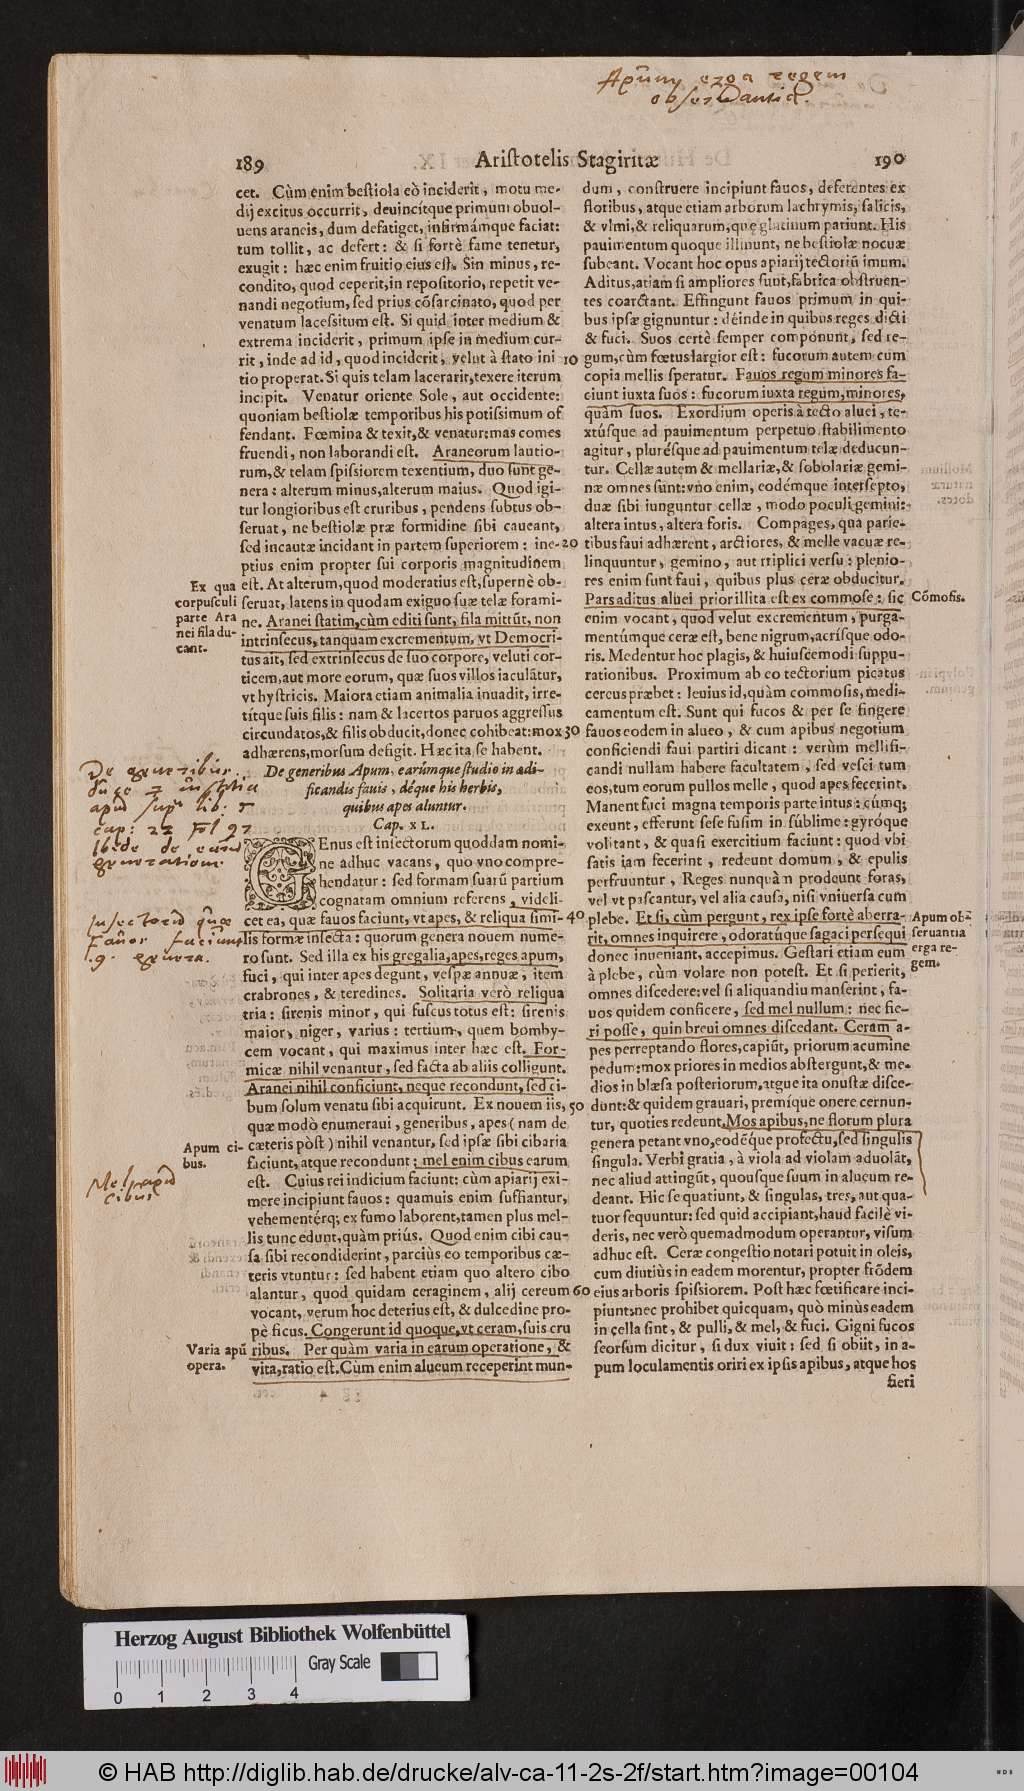 Apum erga regem
observantia.
189 Aristotelis Stagiritæ 190
cet. Cùm enim bestiola eò inciderit, motu me-
dij excitus occurrit, deuincítque primum obuol-
uens araneis, dum defatiget, infirmámque faciat:
tum tollit, ac defert: & si fortè fame tenetur,
exugit: hæc enim fruitio eius est. Sin minus, re-
condito, quod ceperit, in repositorio, repetit ve-
nandi negotium, sed prius cõsarcinato, quod per
venatum lacessitum est. Si quid inter medium &
extrema inciderit, primum ipse in medium cur-
rit, inde ad id, quod inciderit, velut à stato ini 10
tio properat. Si quis telam lacerarit, texere iterum
incipit. Venatur oriente Sole, aut occidente:
quoniam bestiolæ temporibus his potissimum of
fendant. Fœmina & texit, & venatur: mas comes
fruendi, non laborandi est. Araneorum lautio-
rum, & telam spissiorem texentium, duo sunt ge-
nera: alterum minus, alterum maius. Quod igi-
tur longioribus est cruribus, pendens subtus ob-
seruat, ne bestiolæ præ formidine sibi caueant,
sed incautæ incidant in partem superiorem: ine- 20
ptius enim propter sui corporis magnitudinem
est. At alterum, quod moderatius est, supernè ob-
seruat, latens in quodam exiguo suæ telæ forami-
ne. Aranei statim, cùm editi sunt, fila mittũt, non
intrinsecus, tanquam excrementum, vt Democri-
tus ait, sed extrinsecus de suo corpore, veluti cor-
ticem, aut more eorum, quæ suos villos iaculãtur,
vt hystricis. Maiora etiam animalia inuadit, irre-
títque suis filis: nam & lacertos paruos aggressus
circundatos, & filis obducit, donec cohibeat: mox 30
adhærens, morsum defigit. Hæc ita se habent.
Ex qua
corpusculi
parte Ara
nei fila du-
cant.
De generibus Apum, earúmque studio in ædi-
ficandis fauis, déque his herbis,
quibus apes aluntur.
Cap. XL.
GEnus est insectorum quoddam nomi-
ne adhuc vacans, quo vno compre-
hendatur: sed formam suarũ partium
cognatam omnium referens, videli-
cet ea, quæ fauos faciunt, vt apes, & reliqua simi- 40
lis formæ insecta: quorum genera nouem nume-
ro sunt. Sed illa ex his gregalia, apes, reges apum,
fuci, qui inter apes degunt, vespæ annuæ, item
crabrones, & teredines. Solitaria verò reliqua
tria: sirenis minor, qui fuscus totus est: sirenis
maior, niger, varius: tertium, quem bomby-
cem vocant, qui maximus inter hæc est. For-
micæ nihil venantur, sed facta ab aliis colligunt.
Aranei nihil conficiunt, neque recondunt, sed ci-
bum solum venatu sibi acquirunt. Ex nouem iis, 50
quæ modò enumeraui, generibus, apes (nam de
cæteris pòst) nihil venantur, sed ipsæ sibi cibaria
faciunt, atque recondunt: mel enim cibus earum
est. Cuius rei indicium faciunt: cùm apiarij exi-
mere incipiunt fauos: quamuis enim suffiantur,
vehementérq; ex fumo laborent, tamen plus mel-
lis tunc edunt, quàm priùs. Quod enim cibi cau-
sa sibi recondiderint, parciùs eo temporibus cæ-
teris vtuntur: sed habent etiam quo altero cibo
alantur, quod quidam ceraginem, alij cereum 60
vocant, verum hoc deterius est, & dulcedine pro-
pè ficus. Congerunt id quoque, vt ceram, suis cru
ribus. Per quàm varia in earum operatione, &
vita, ratio est. Cùm enim alueum receperint mun-
De generibus
cap: 22 Fol 97
Insectorum quæ
9. genera.
Apum ci-
bus.
Mel apum
cibus
Varia apũ
opera.
dum, construere incipiunt fauos, deferentes ex
floribus, atque etiam arborum lachrymis, salicis,
& vlmi, & reliquarum, quę glutinum pariunt. His
pauimentum quoque illinunt, ne bestiolæ nocuæ
subeant. Vocant hoc opus apiarij tectoriũ imum.
Aditus, etiam si ampliores sunt, fabrica obstruen-
tes coarctant. Effingunt fauos primum in qui-
bus ipsæ gignuntur: déinde in quibus reges dicti
& fuci. Suos certè semper componunt, sed re-
gum, cùm fœtus largior est: fucorum autem cum
copia mellis speratur. Fauos regum minores fa-
ciunt iuxta suos: fucorum iuxta regum, minores,
quàm suos. Exordium operis à tecto aluei, te-
xtúsque ad pauimentum perpetuo stabilimento
agitur, plurésque ad pauimentum telæ deducun-
tur. Cellæ autem & mellariæ, & sobolariæ gemi-
næ omnes sunt: vno enim, eodémque intersepto,
duæ sibi iunguntur cellæ, modo poculi gemini:
altera intus, altera foris. Compages, qua parie-
tibus faui adhærent, arctiores, & melle vacuæ re-
linquuntur, gemino, aut triplici versu: plenio-
res enim sunt faui, quibus plus ceræ obducitur.
Pars aditus aluei prior illita est ex commose: sic
enim vocant, quod velut excrementum, purga-
mentúmque ceræ est, bene nigrum, acrísque odo-
ris. Medentur hoc plagis, & huiuscemodi suppu-
rationibus. Proximum ab eo tectorium picatus
cereus præbet: leuius id, quàm commosis, medi-
camentum est. Sunt qui fucos & per se fingere
fauos eodem in alueo, & cum apibus negotium
conficiendi faui partiri dicant: verùm mellifi-
candi nullam habere facultatem, sed vesci tum
eos, tum eorum pullos melle, quod apes fecerint.
Manent fuci magna temporis parte intus: cúmq;
exeunt, efferunt sese fusim in súblime: gyróque
volitant, & quasi exercitium faciunt: quod vbi
satis iam fecerint, redeunt domum, & epulis
perfruuntur, Reges nunquã prodeunt foras,
vel vt pascantur, vel alia causa, nisi vniuersa cum
plebe. Et si, cùm pergunt, rex ipse fortè aberra-
rit, omnes inquirere, odoratúque sagaci persequi
donec inueniant, accepimus. Gestari etiam eum
à plebe, cùm volare non potest. Et si perierit,
omnes discedere: vel si aliquandiu manserint, fa-
uos quidem conficere, sed mel nullum: nec fie-
ri posse, quin breui omnes discedant. Ceram a-
pes perreptando flores, capiũt, priorum acumine
pedum: mox priores in medios abstergunt, & me-
dios in blæsa posteriorum, atque ita onustæ disce-
dunt: & quidem grauari, premíque onere cernun-
tur, quoties redeunt. Mos apibus, ne florum plura
genera petant vno, eodéque profectu, sed singulis
singula. Verbi gratia, à viola ad violam aduolãt,
nec aliud attingũt, quousque suum in alueum re-
deant. Hic sequatiunt, & singulas, tres, aut qua-
tuor sequuntur: sed quid accipiant, haud facilè vi-
deris, nec verò quemadmodum operantur, visum
adhuc est. Ceræ congestio notari potuit in oleis,
cum diutiùs in eadem morentur, propter frõdem
eius arboris spissiorem. Post hæc fœtificare inci-
piunt: nec prohibet quicquam, quò minùs eadem
in cella sint, & pulli, & mel, & fuci. Gigni fucos
seorsum dicitur, si dux viuit: sed si obiit, in a-
pum loculamentis oriri ex ipsis apibus, atque hos
fieri
Cõmosis.
Apum ob-
seruantia
erga re-
gem.
Herzog August Bibliothek Wolfenbüttel
Gray Scale
0 1 2 3 4
© HAB http://diglib.hab.de/drucke/alv-ca-11-2s-2f/start.htm?image=00104